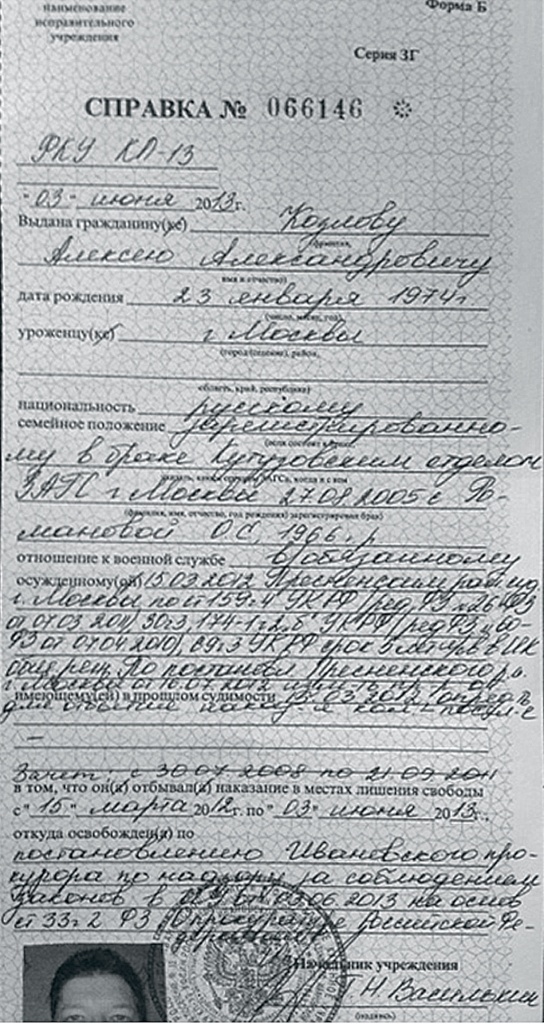 наименование
исправительного
учреждения
Форма Б
Серия ЗГ
СПРАВКА № 066146
ФКУ КП-13
"03" июня 2013г.
Выдана гражданину(ке) Козлову
(фамилия,
Алексею Александровичу
имя и отчество)
дата рождения 23 января 1974г
(число, месяц, год),
уроженцу(ке) г Москвы
(город (селение), район,
область, край, республика)
национальность русскому
семейное положение зарегистрированно-
(если состоит в браке,
му в браке Кутузовским отделом
ЗАГС г Москвы 2005 с Ро-
(фамилия, имя, отчество, год рождения) зарегистрирован брак)
мановой О С, 1966 г р
отношение к военной службе в/обязанному
осужденному(ой) 15.03 2012 Пресненским рай суд
г. Москвы по ст 159ч4 УК РФ (ред ФЗ №26-ФЗ
от 07.03 2011), 30ч3, 174-1 ч2 УК РФ (ред ФЗ 60-
ФЗ от 07.04 2010), 69ч3 УК РФ срок 5 лет в ИК
общ реж, По постанов Пресненского р.
г. Москвы от 2012
имеющему(ей) в прошлом судимости
—
Зачет: с 30 07 2008 по 21 09 2011
в том, что он(а) отбывал(а) наказание в местах лишения свободы
с "15" марта 2012г. по "03" июня 2013г.,
откуда освобожден(а) по
постановлению Ивановского про-
курора по надзору за соблюдением
законов в ИУ от 03.06 2013 на основ
ст 33ч 2 ФЗ О прокуратуре Российской Фе-
дерации
Начальник учреждения
Г.Н Василькин
(подпись)